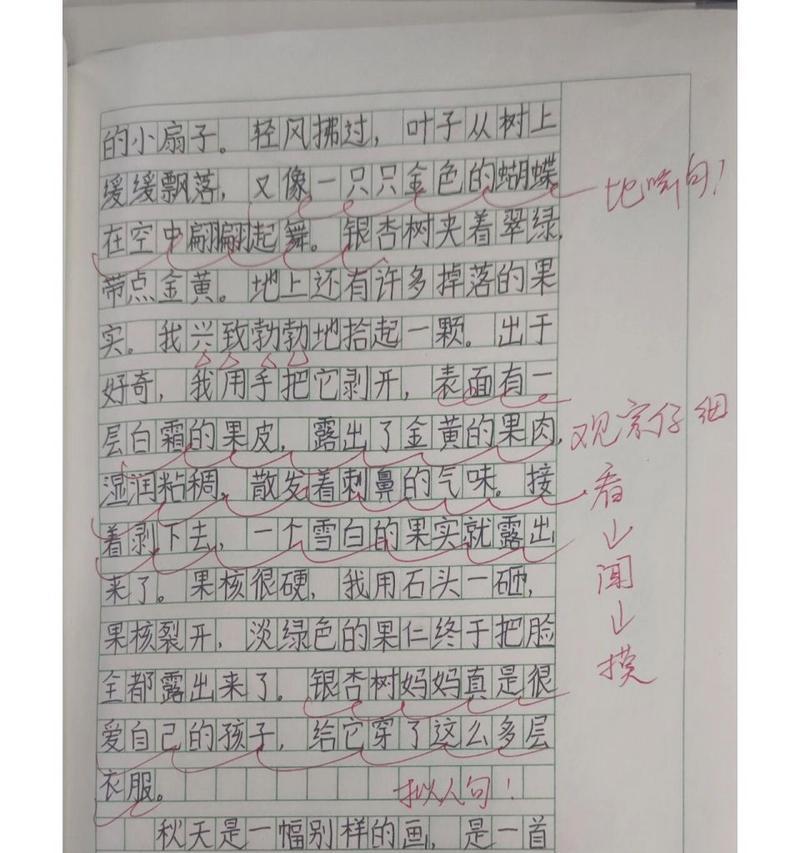 的小扇子。轻风拂过，叶子从树上
缓缓飘落，又像一只只金色的蝴蝶
在空中翩翩起舞。银杏树夹着翠绿，
带点金黄。地上还有许多掉落的果
实。我兴致勃勃地拾起一颗。出于
好奇，我用手把它剥开，表面有一
层白霜的果皮，露出了金黄的果肉，
湿润粘稠，散发着刺鼻的气味。接
着剥下去，一个雪白的果实就露出
来了。果核很硬，我用石头一砸，
果核裂开，淡绿色的果仁终于把脸
全都露出来了。银杏树妈妈真是很
爱自己的孩子，给它穿了这么多层
衣服。
秋天是一幅别样的画，是一首
比喻句！
观察仔细
看
闻
摸
拟人句！